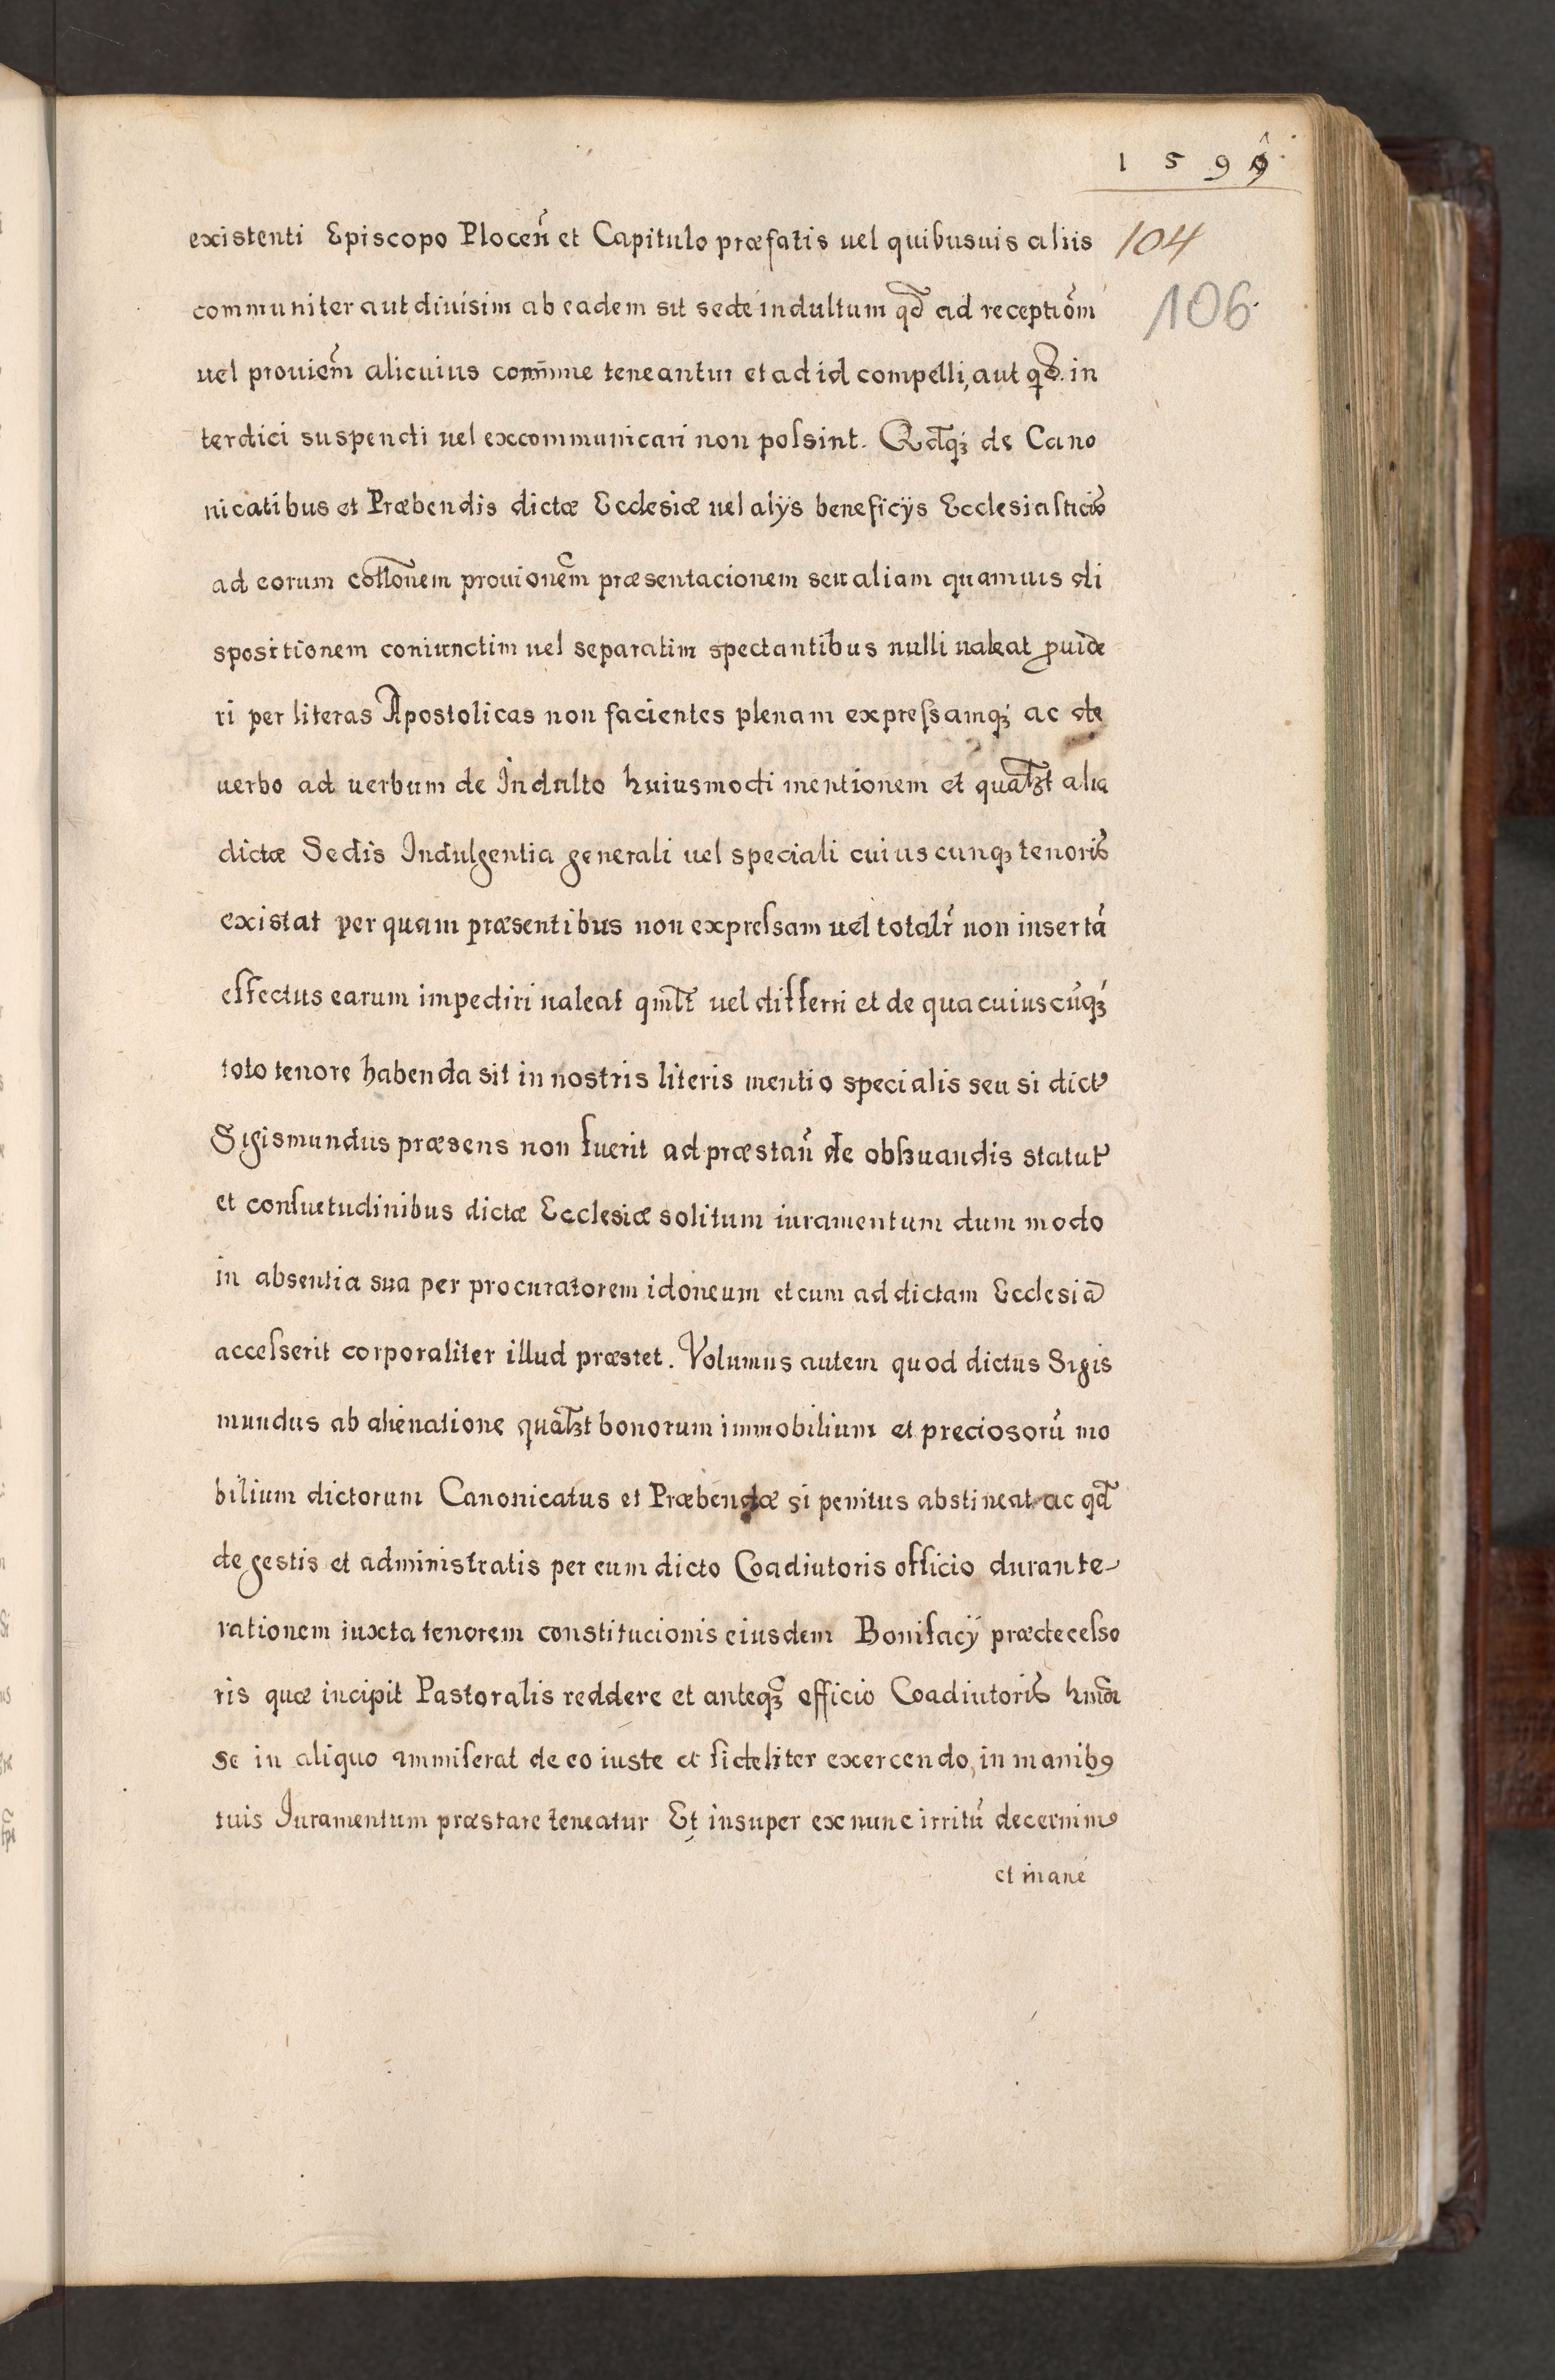 1599
existenti Episcopo Plocen̄ et Capitulo præfatis uel quibusuis aliis
104
communiter aut diuisim ab eadem sit sede indultum qđ ad receptiōm
106
uel prouiēm alicuius com̄une teneantur et ad id compelli, aut qđ. in
terdici suspendi uel excommunicari non poſsint. Qđqꝫ de Cano
nicatibus et Præbendis dictæ Ecclesiæ uel alÿs beneficÿs Ecclesiaſticis
ad eorum coƚƚonem prouionēm præsentacionem seu aliam quamuis di
spositionem coniunctim uel separatim spectantibus nulli ualeat ꝓuide
ri per literas Apostolicas non facientes plenam expreſsamqꝫ ac de
uerbo ad uerbum de Indulto huiusmodi mentionem et quaƚꝫt alia
dictæ Sedis Indulgentia generali uel speciali cuiuscunqꝫ tenoris
existat per quam præsentibus non expreſsam uel totalr̃ non insertā
effectus earum impediri ualeat qmƚt uel differri et de qua cuiuscūqꝫ
toto tenore habenda sit in nostris literis mentio specialis seu si dictꝰ
Sigismundus præsens non fuerit ad præstan̄ de obſeruandis statutꝰ
et conſuetudinibus dictæ Ecclesiæ solitum iuramentum dum modo
in absentia sua per procuratorem idoneum et cum ad dictam Ecclesiā
acceſserit corporaliter illud præstet. Volumus autem quod dictus Sigis
mundus ab alienatione quaƚꝫt bonorum immobilium et preciosorū mo
bilium dictorum Canonicatus et Præbendæ si penitus abstineat ac qđ
de gestis et administratis per eum dicto Coadiutoris officio durante
rationem iuxta tenorem constitucionis eiusdem Bonifacÿ prædeceſso
ris quæ incipit Pastoralis reddere et anteqꝫ officio Coadiutoris hmōi
se in aliquo immiſerat de eo iuste et fideliter exercendo, in manibꝰ
tuis Iuramentum præstare teneatur Et insuper ex nunc irritū decernimꝰ
et inane